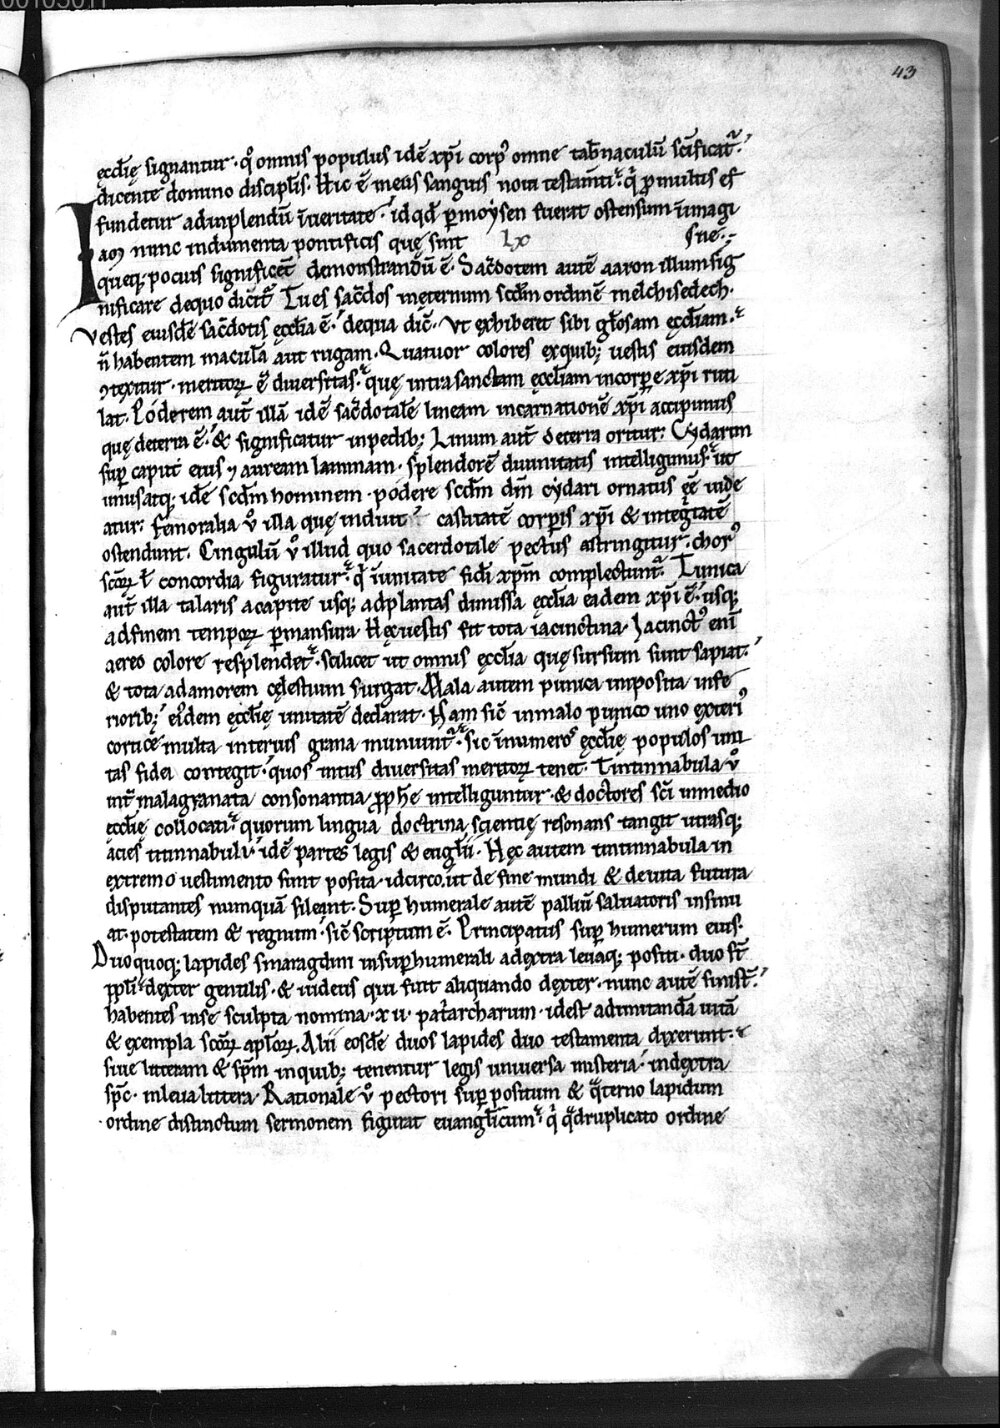 43
ęcclię signantur. qđ omnis populus idē xp̄i corp᾿ omne tab̄naculū scīficat᷑.
dicente domino discipl̄is. Hic ē meus sanguis noui testam̄ti. q̄ p multis ef
fundetur adinplendū īueritate. id qđ p moysen fuerat ostensum īimagi
Iam nunc indumenta pontificis quę sint LX ne.
queq; pocius significēt demonstrandū ē. Sac̄dotem autē aaron illum sig
nificare dequo dicit᷑ Tu es sac̄dos ineternum scd̄m ordinē melchisedech.
Vestes eiusdē sac̄dotis ęcclia ē. dequa dic̄. Vt exhiberet sibi gl̄osam ęccliam.
n̄ habentem maculā aut rugam. Quatuor colores exquib; uestis eiusdem
ꝯtexitur. meritoꝝ ē diuersitas. quę intra sanctam ęccliam incorpore xp̄i ruti
lat. Poderem aut̄ illā idē sac̄dotalē lineam incarnationē xp̄i accipimus
quę deterra ē. & significatur inpedib; Linum aut̄ deterra oritur. Cydarim
sup caput eius ⁊ auream lammam. splendorē diuinitatis intelligimus. ut
unusatq; idē scd̄m hominem. podere scd̄m dm̄ cydari ornatus eē uide
atur. Femoralia ū illa quę induit castitatē corporis xp̄i & integritatē
ostendunt. Cingulū ū illud quo sacerdotale pectus astringitur. chor᾿
scōꝝ ł concordia figuratur. q̄ īunitate fidi xpm̄ complectunt᷑. Tunica
aut̄ illa talaris acapite usq; adplantas dimissa ęcclia eadem xp̄i ē. usq;
adfinem tempoꝝ pmansura. Hęc uestis fit tota iacinctina. Iacinct᾿ enī
aereo colore resplendet. scilicet ut omnis ęcclia quę sursum sunt sapiat.
& tota adamorem cęlestium surgat. Mala autem punica imposita infe
riorib; eidem ęcclię unitatē declarat. Nam sic̄ inmalo punico uno exteri᾿
cortice multa interius grana muniunt᷑. sic īnumeros ęcclię populos uni
tas fidei contegit. quos intus diuersitas meritoꝝ tenet. Tintinnabula ū
int̄ malagranata consonantia pph̄ę intelliguntur. & doctores sc̄i inmedio
ęcclię collocati. quorum lingua doctrina scientię resonans tangit utrasq;
acies titinnabuli. idē partes legis & eugl̄ii. Hęc autem tintinnabula in
extremo uestimento sunt posita. idcirco. ut de fine mundi & deuita futura
disputantes nunquā sileant. Sup humerale autē palliū saluatoris insinu
at. potestatem & regnum. sic̄ scriptum ē. Principatus sup humerum eius.
Duo quoq; lapides smaragdini insuphumerali adextra leuaq; positi. duo st̄
ppl̄i. dexter gentilis. & iudeus qui fuit aliquando dexter. nunc autē sinist᷑.
habentes inse sculpta nomina. xii. patriarcharum. idest adimitandā uitā
& exempla scōꝝ apl̄oꝝ. Alii eosdē duos lapides duo testamenta dixerunt.
siue litteram & spm̄ inquib; tenentur legis uniuersa misteria. indextra
spc̄. inleua littera. Rationale ū pectori sup positum & q̄terno lapidum
ordine distinctum sermonem figurat euangl̄icum. q̄ q̄druplicato ordine